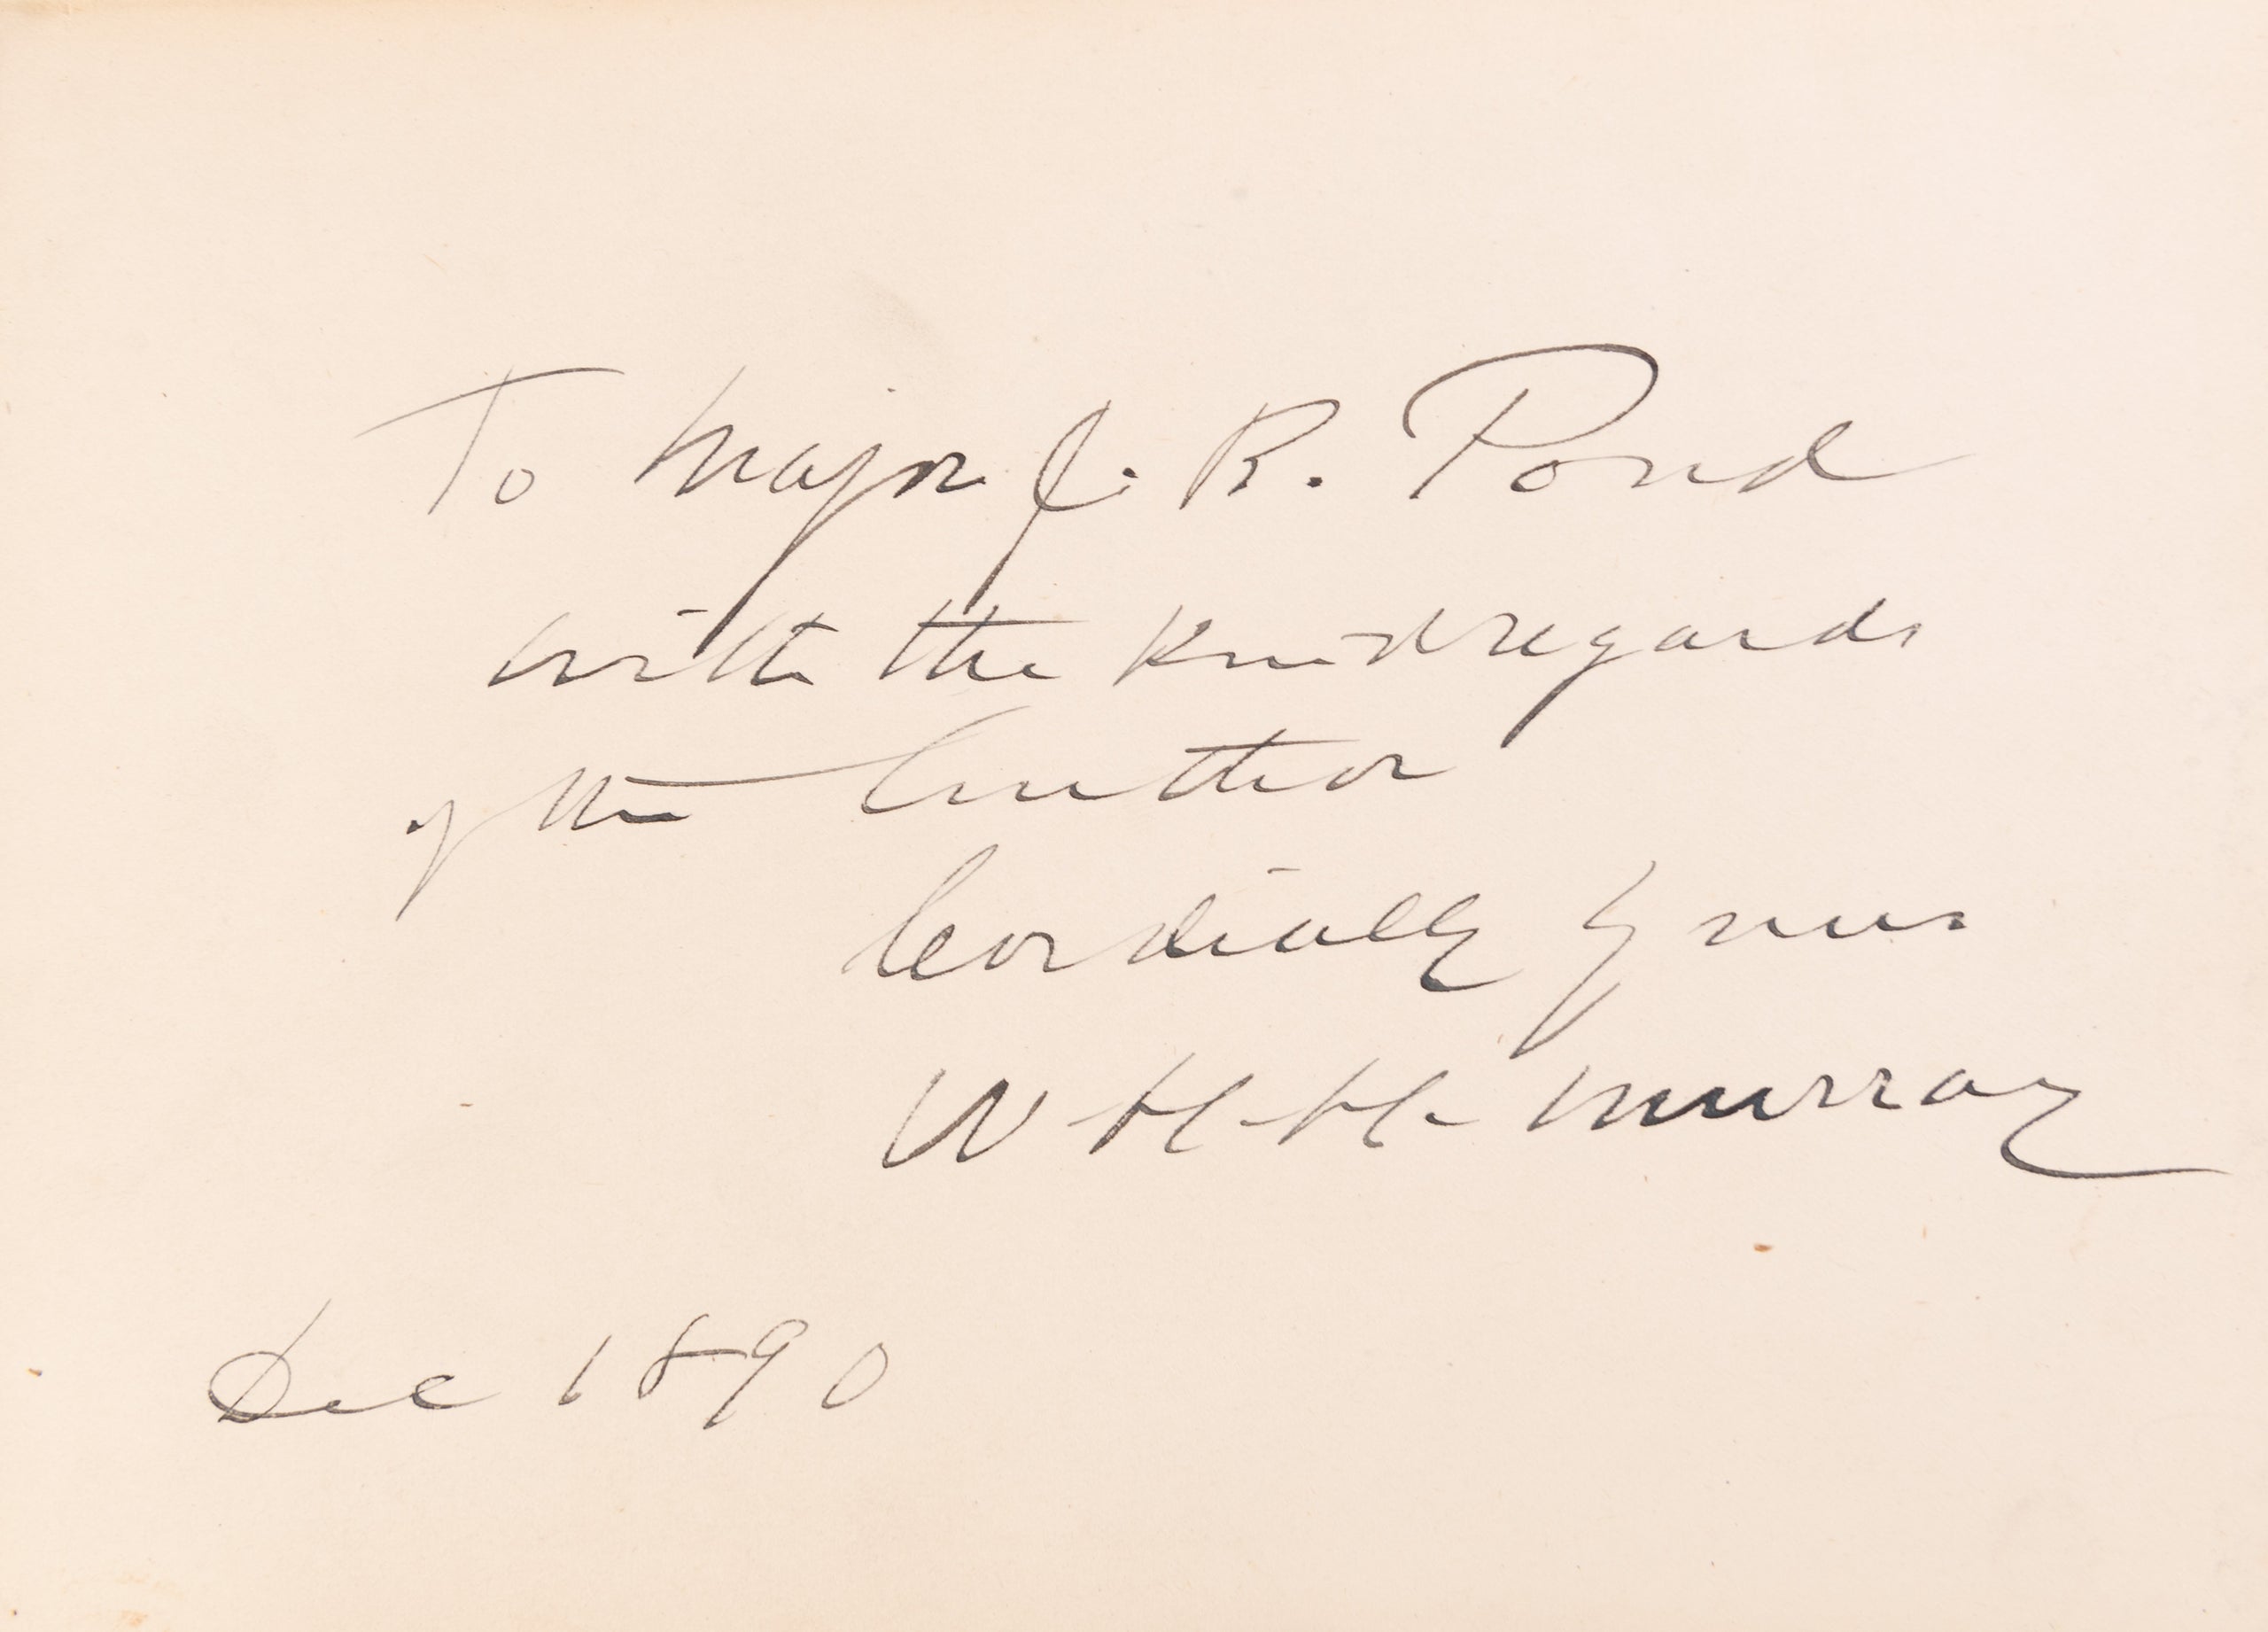 To Major J. B. Pond
with the kind regards
of the Author
Cordially yours
W. H. H. Murray
Dec 1890